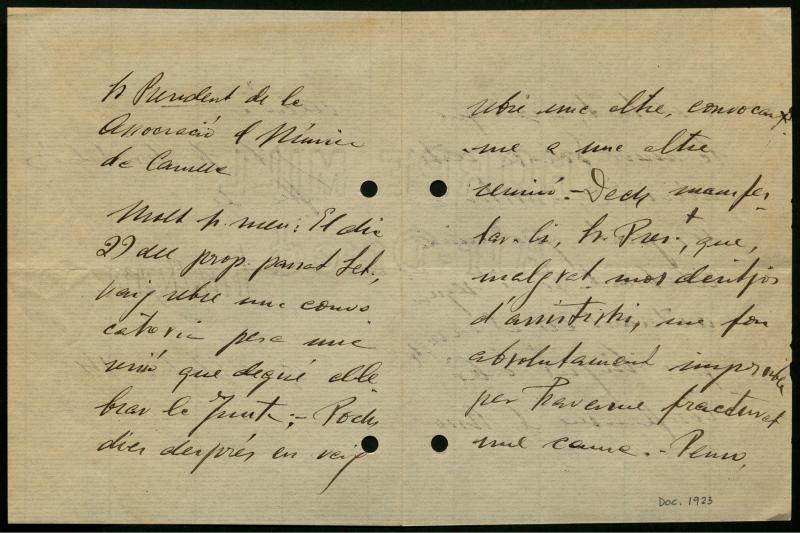 Sr President de la
Associació d'Música
de Camera
Molt Sr. meu: El dia
27 del prop. passat Set.,
vaig rebre una convo
catoria pera una
reunió que degué cele
brar la Junta;- Pochs
dies després en vaig
rebre una altre, convocant
-me a una altre
reunió.- Dech manifes
tar-li, Sr. Pres.t, que,
malgrat mos desitjos
d'assistirhi, me fou
absolutament impossible
per haverme fracturat
una cama.- Penso,
Doc. 1923